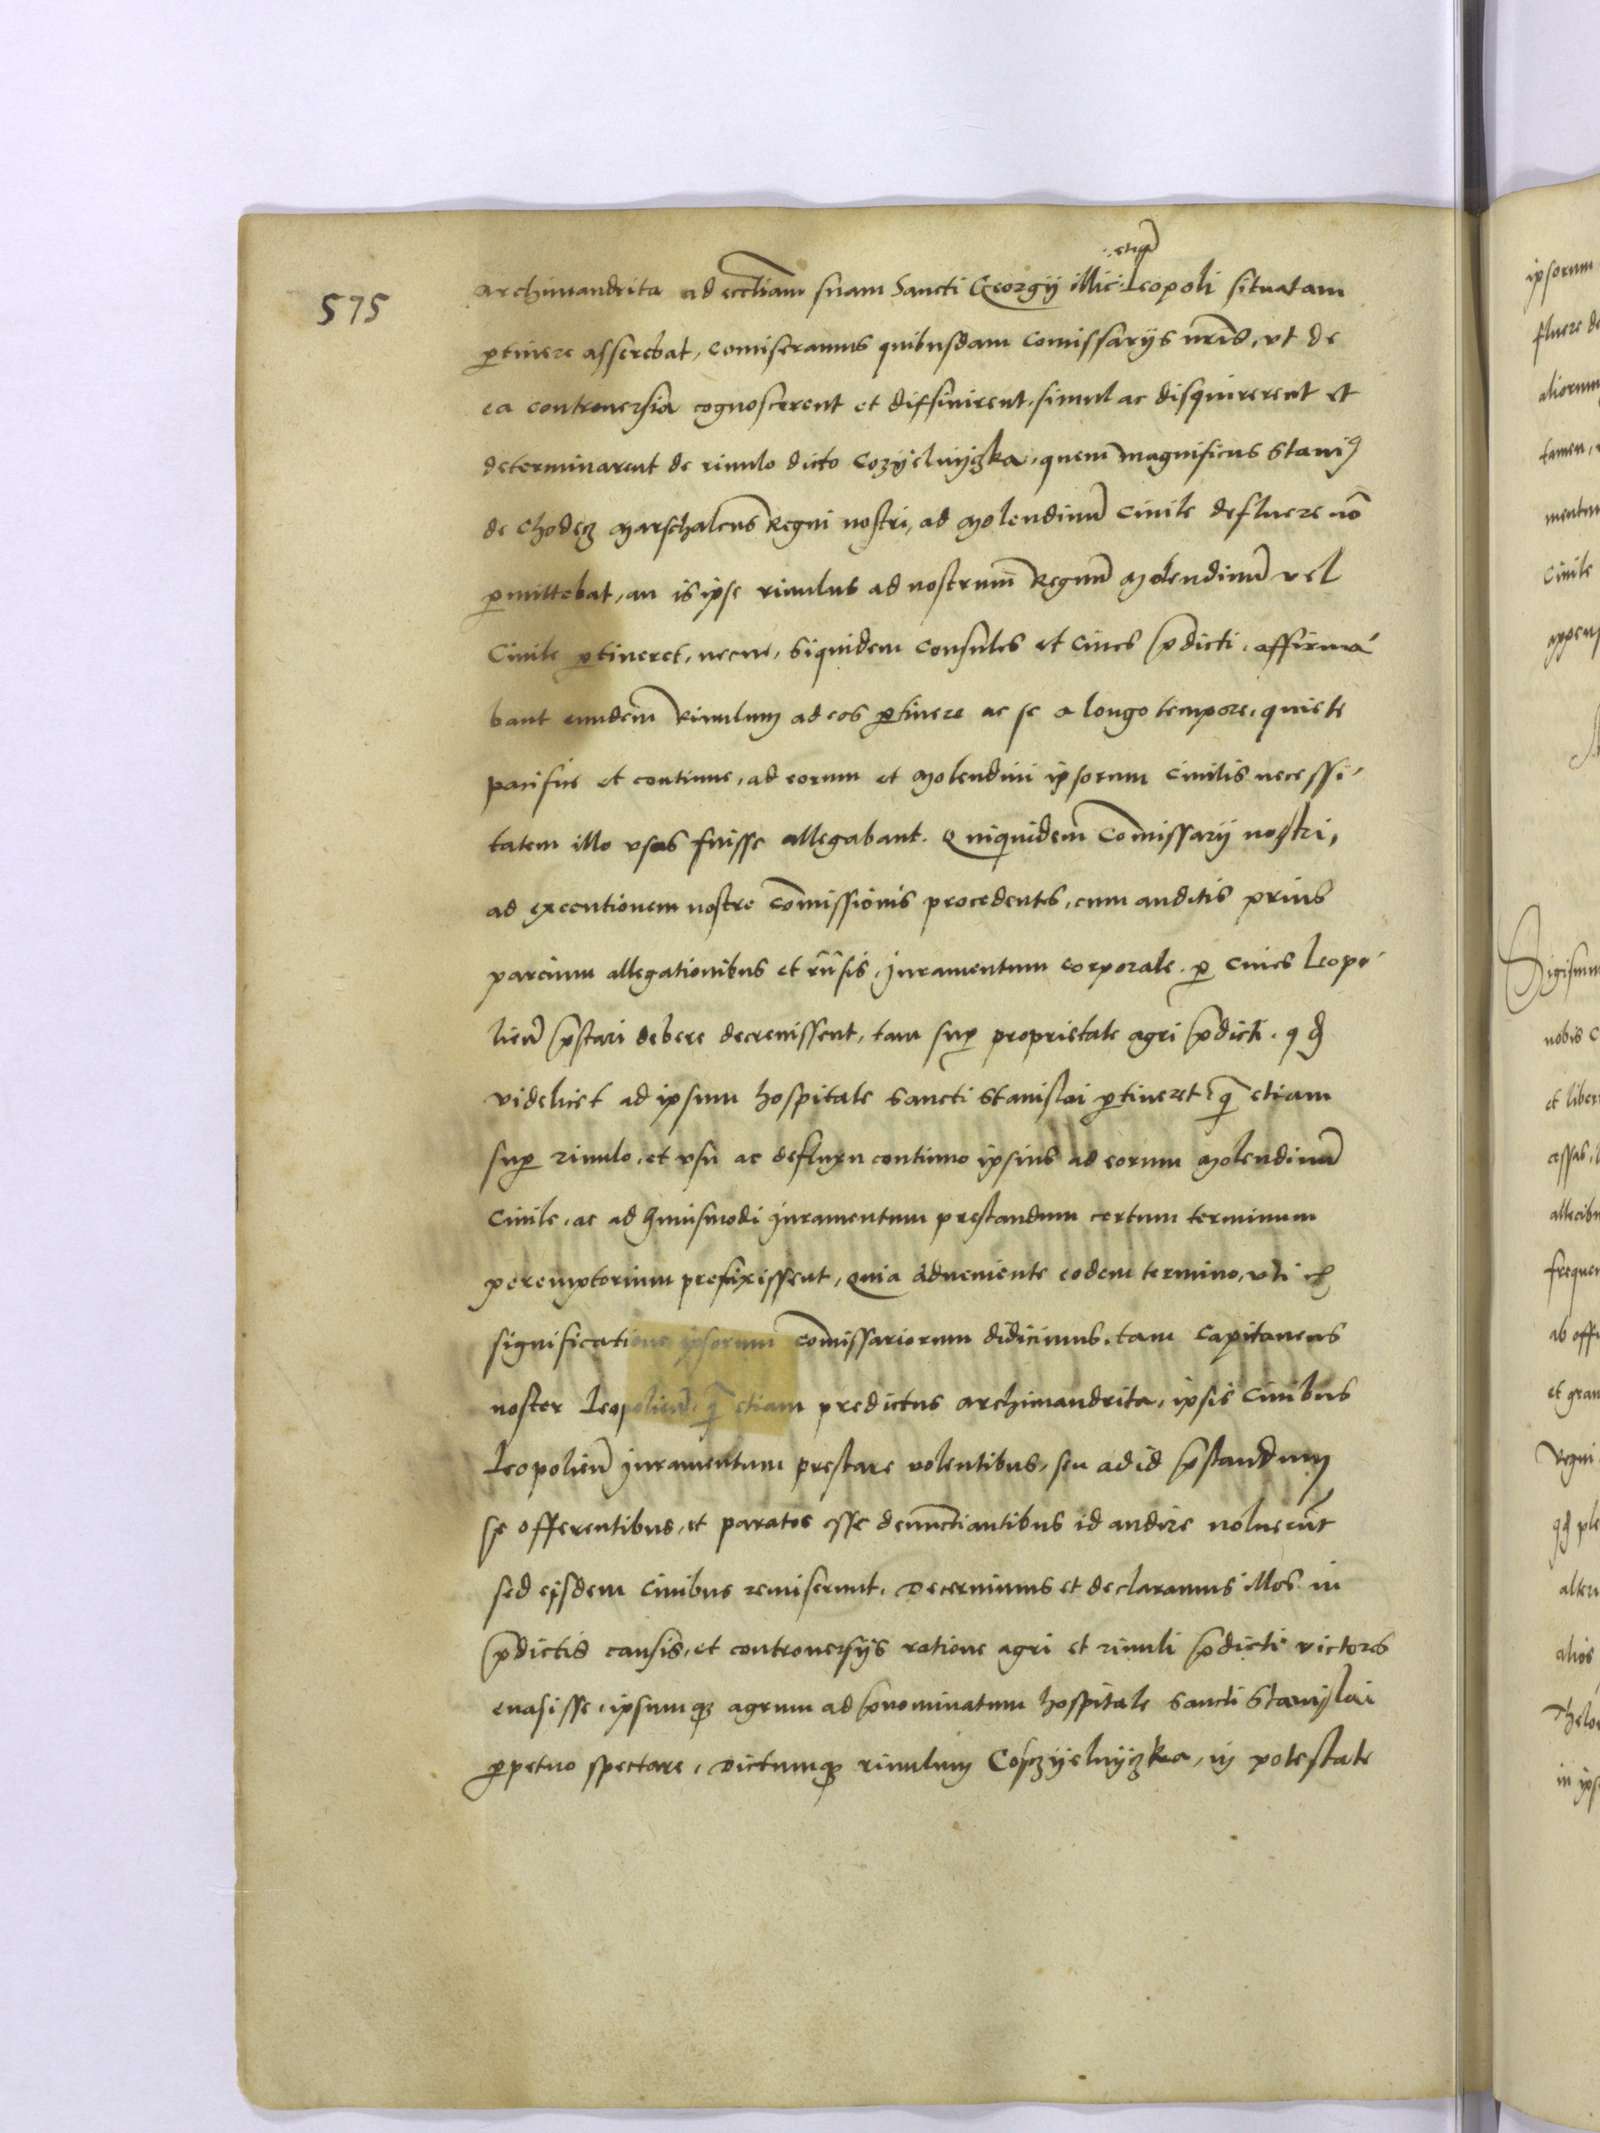 575
etiã
archimandrita ad eccliam suam Sancti Georgij illic Leopoli situatam
ptinere asserebat, comiseramus quibusdam Comissarijs nris, vt de
ea controuersia cognoscerent et diffinirent, simul ac disquirerent et
determinarent de riuulo dicto Cozyelnyczka, quem magnificus Stanis
de Chodecz Marschalcus Regni nostri, ad Molendinũ Ciuile defluere nõ
pmittebat, an is ipse riuulus ad nostrum Regium Molendinũ vel
Ciuile ptineret, necne, Siquidem Consules et Ciues pdicti, affirma
bant eundem Riuulum ad eos ptinere ac se a longo tempore, quiete
pacifice et continue, ad eorum et Molendini ipsorum Ciuilis necessi
tatem illo vsos fuisse allegabant. Quiquidem Comissarij nostri,
ad executionem nostre Comissionis procedentes, cum auditis prius
parcium allegationibus et rñsis, Juramentum corporale p ciues Leopo
lieñ pstari debere decreuissent, tam sup proprietate agri pdicti, qd
videlicet ad ipsum hospitale Sancti Stanislai ptineret q̃ etiam
sup riuulo, et vsu ac defluxu continuo ipsius ad eorum Molendinũ
Ciuile, ac ad huiusmodi Juramentum prestandum certum terminum
peremptorium prefixissent, Quia adueniente eodem termino, vti ex
significatione ipsorum Comissariorum didicimus, tam Capitaneus
noster Leopolieñ, q̃ etiam predictus archimandrita, ipsis Ciuibus
Leopolieñ Juramentum prestare volentibus, seu ad id pstandum
se offerentibus, et paratos esse denunctiantibus id audire noluerũt
sed eisdem Ciuibus remiserunt, Decernimus et declaramus illos in
pdictis causis, et controuersijs ratione agri et riuuli pdicti victores
euasisse, ipsumq3 agrum ad pnominatum hospitale Sancti Stanislai
ppetuo spectare, Dictumq3 riuulum Cosczyelnyczka, in potestate